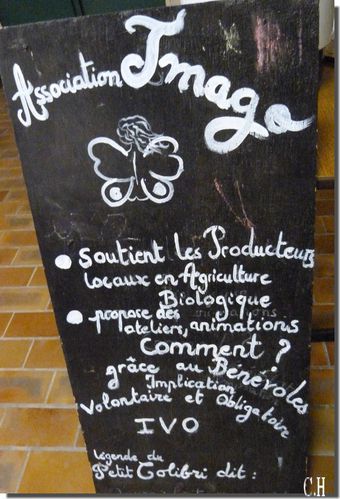 Association Imago
• soutient les Producteurs
locaux en Agriculture
Biologique
• propose des
ateliers, animations
Comment ?
grâce au Bénévoles
Implication
Volontaire et Obligatoire
IVO
Légende du
Petit Colibri dit :
C.H